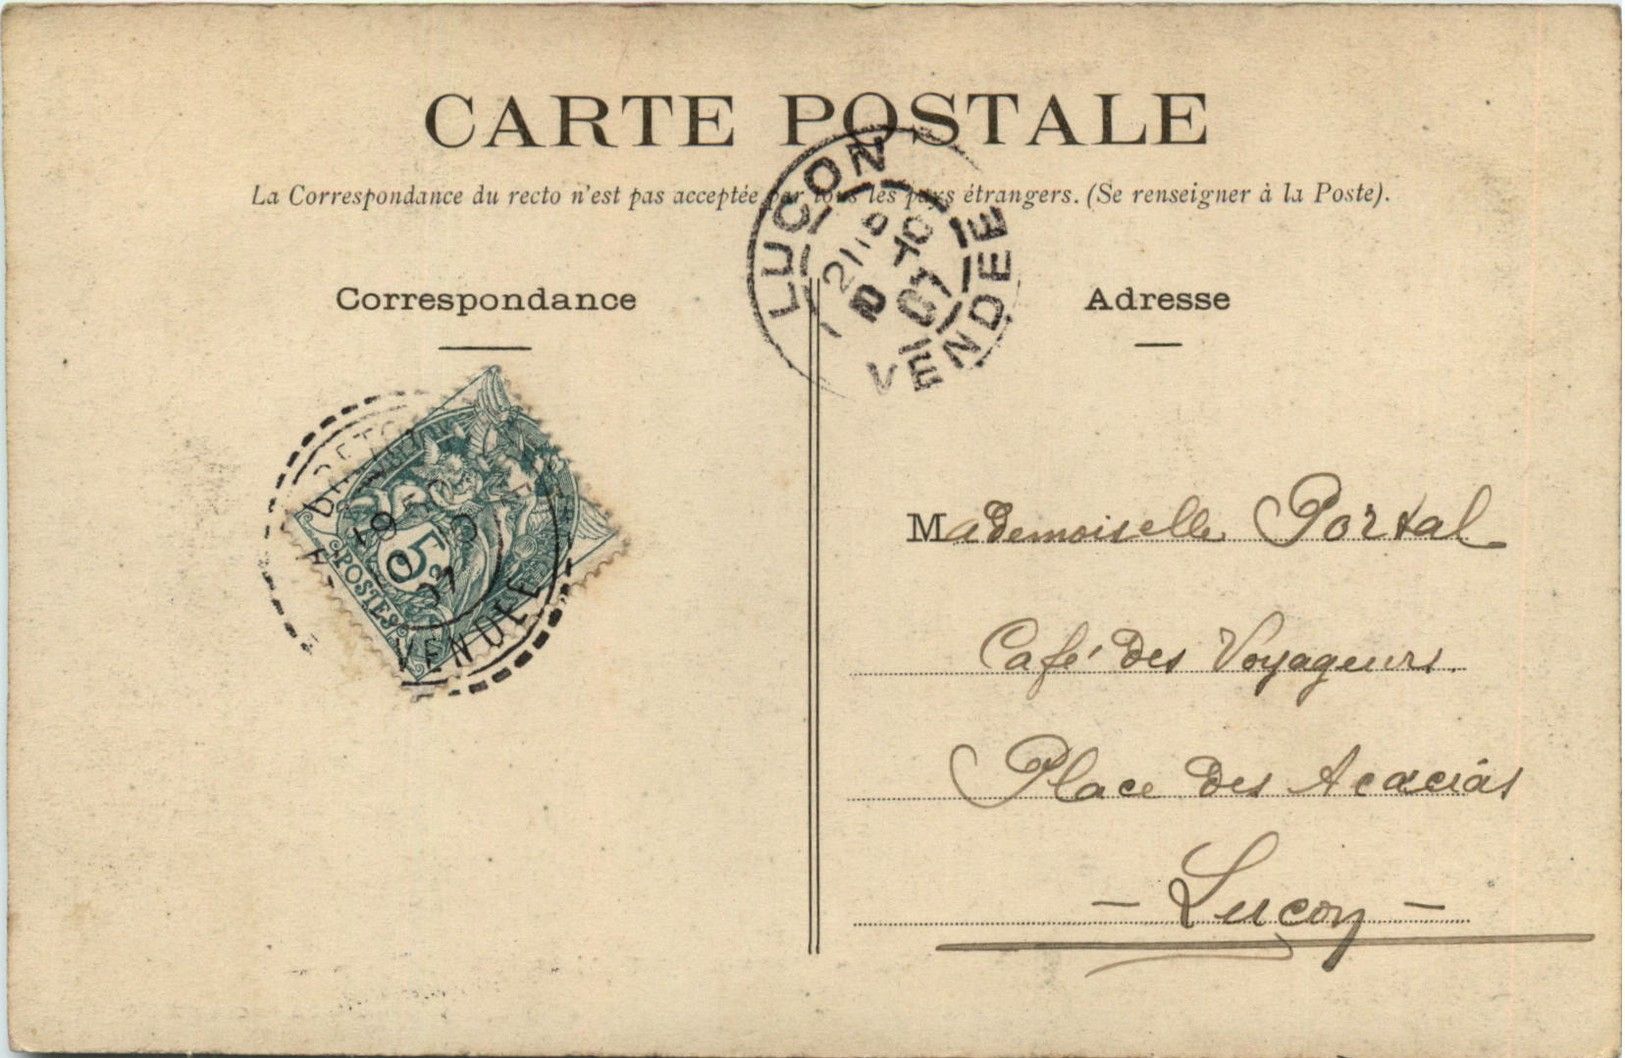 CARTE POSTALE
La Correspondance du recto n'est pas acceptée par tous les pays étrangers. (Se renseigner à la Poste).
LUÇON
10
07
VENDEE
Correspondance
Adresse
POSTES
5c
07
VENDEE
Mademoiselle Portal
Café des Voyageurs.
Place des Acacias
- Luçon -